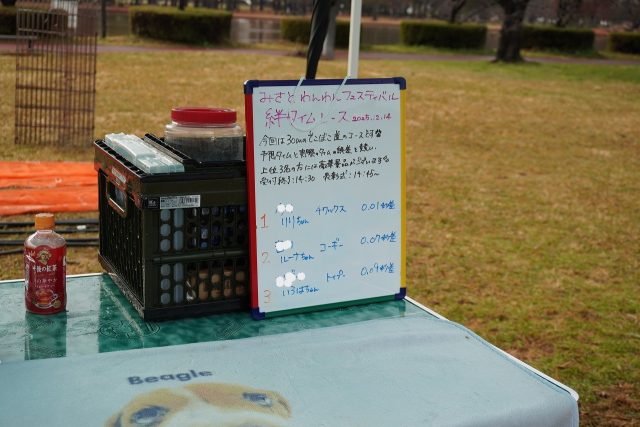 みさと わんわんフェスティバル
絆タイムレース 2025.12.14
今回は30mのでこぼこ道のコースです
予測タイムと実際のタイムの誤差を競い、
上位3名の方には豪華景品がございます
受付終了:14:30 表彰式:14:45〜
1 リリちゃん チワックス 0.01秒差
2 ルーナちゃん コーギー 0.07秒差
3 いろはちゃん トイプー 0.09秒差
午後の紅茶
Beagle